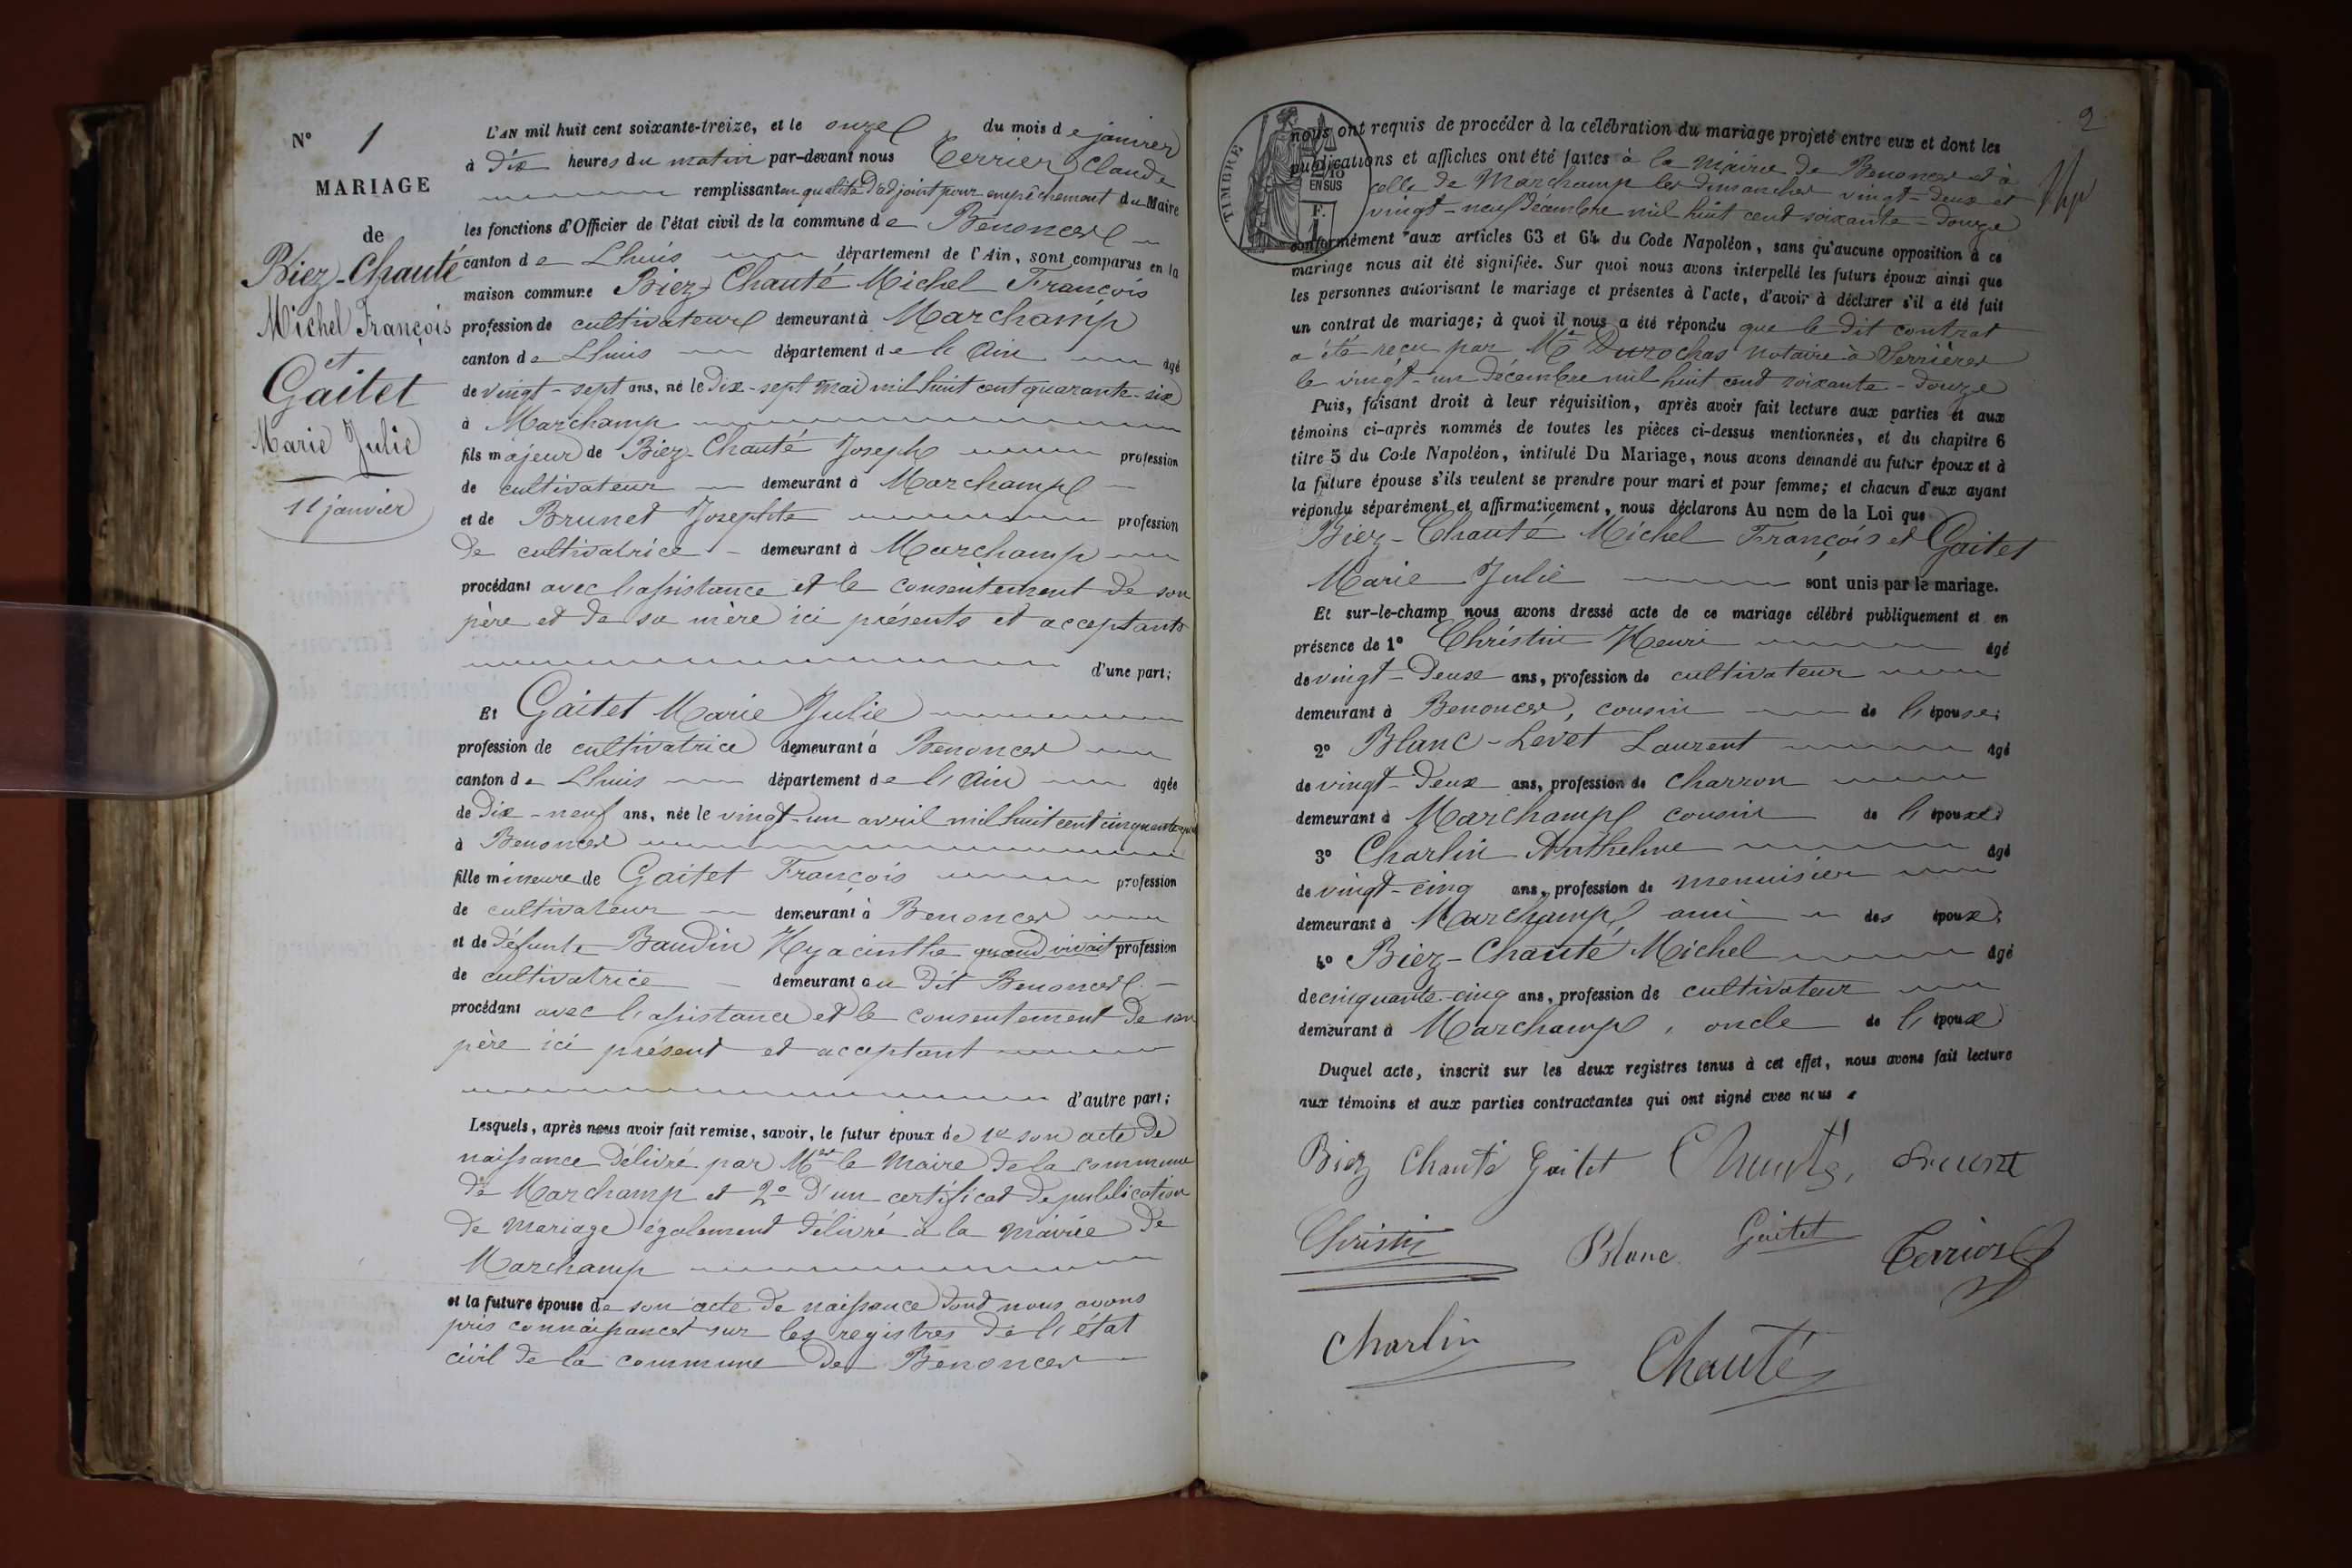 N° 1
MARIAGE
de
Biez-Chauté
Michel François
et
Gaitet
Marie Julie
11 janvier
L'AN mil huit cent soixante-treize, et le onze du mois de janvier
à dix heures du matin par-devant nous Terrier Claude
remplissant en qualité d'adjoint pour empêchement du Maire
les fonctions d'Officier de l'état civil de la commune de Benonces
canton de Lhuis département de l'Ain, sont comparus en la
maison commune Biez-Chauté Michel François
profession de cultivateur demeurant à Marchamp
canton de Lhuis département de l'Ain âgé
de vingt-sept ans, né le dix-sept mai mil huit cent quarante-six
à Marchamp
fils majeur de Biez-Chauté Joseph profession
de cultivateur demeurant à Marchamp
et de Brunet Josephte profession
de cultivatrice demeurant à Marchamp
procédant avec l'assistance et le consentement de son
père et de sa mère ici présents et acceptants
d'une part;
Et Gaitet Marie Julie
profession de cultivatrice demeurant à Benonces
canton de Lhuis département de l'Ain âgée
de dix-neuf ans, née le vingt-un avril mil huit cent cinquante
à Benonces
fille mineure de Gaitet François profession
de cultivateur demeurant à Benonces
et de défunte Baudin Hyacinthe quand vivait profession
de cultivatrice demeurant au dit Benonces
procédant avec l'assistance et le consentement de son
père ici présent et acceptant
d'autre part;
Lesquels, après nous avoir fait remise, savoir, le futur époux de 1° son acte de
naissance délivré par Mr le Maire de la commune
de Marchamp et 2° d'un certificat de publication
de mariage également délivré à la mairie de
Marchamp
et la future épouse de son acte de naissance dont nous avons
pris connaissance sur les registres de l'état
civil de la commune de Benonces
2
TIMBRE
2/10
EN SUS
F.
nous ont requis de procéder à la célébration du mariage projeté entre eux et dont les
publications et affiches ont été faites à la mairie de Benonces et à
celle de Marchamp les dimanches vingt-deux et
vingt-neuf décembre mil huit cent soixante-douze
conformément aux articles 63 et 64 du Code Napoléon, sans qu'aucune opposition à ce
mariage nous ait été signifiée. Sur quoi nous avons interpellé les futurs époux ainsi que
les personnes autorisant le mariage et présentes à l'acte, d'avoir à déclarer s'il a été fait
un contrat de mariage; à quoi il nous a été répondu que le dit contrat
a été reçu par Me Durochas notaire à Serrières
le vingt-un décembre mil huit cent soixante-douze
Puis, faisant droit à leur réquisition, après avoir fait lecture aux parties et aux
témoins ci-après nommés de toutes les pièces ci-dessus mentionnées, et du chapitre 6
titre 5 du Code Napoléon, intitulé Du Mariage, nous avons demandé au futur époux et à
la future épouse s'ils veulent se prendre pour mari et pour femme; et chacun d'eux ayant
répondu séparément et affirmativement, nous déclarons Au nom de la Loi que
Biez-Chauté Michel François et Gaitet
Marie Julie sont unis par le mariage.
Et sur-le-champ nous avons dressé acte de ce mariage célébré publiquement et en
présence de 1° Christin Henri âgé
de vingt-deux ans, profession de cultivateur
demeurant à Benonces, cousin de l'épouse;
2° Blanc-Levet Laurent âgé
de vingt-deux ans, profession de charron
demeurant à Marchamp cousin de l'époux;
3° Charlin Anthelme âgé
de vingt-cinq ans, profession de menuisier
demeurant à Marchamp, ami des époux;
4° Biez-Chauté Michel âgé
de cinquante-cinq ans, profession de cultivateur
demeurant à Marchamp, oncle de l'époux
Duquel acte, inscrit sur les deux registres tenus à cet effet, nous avons fait lecture
aux témoins et aux parties contractantes qui ont signé avec nous
Biez Chauté Gaitet Chauté, Brunet
Christin Blanc Gaitet Terrier
Charlin Chauté